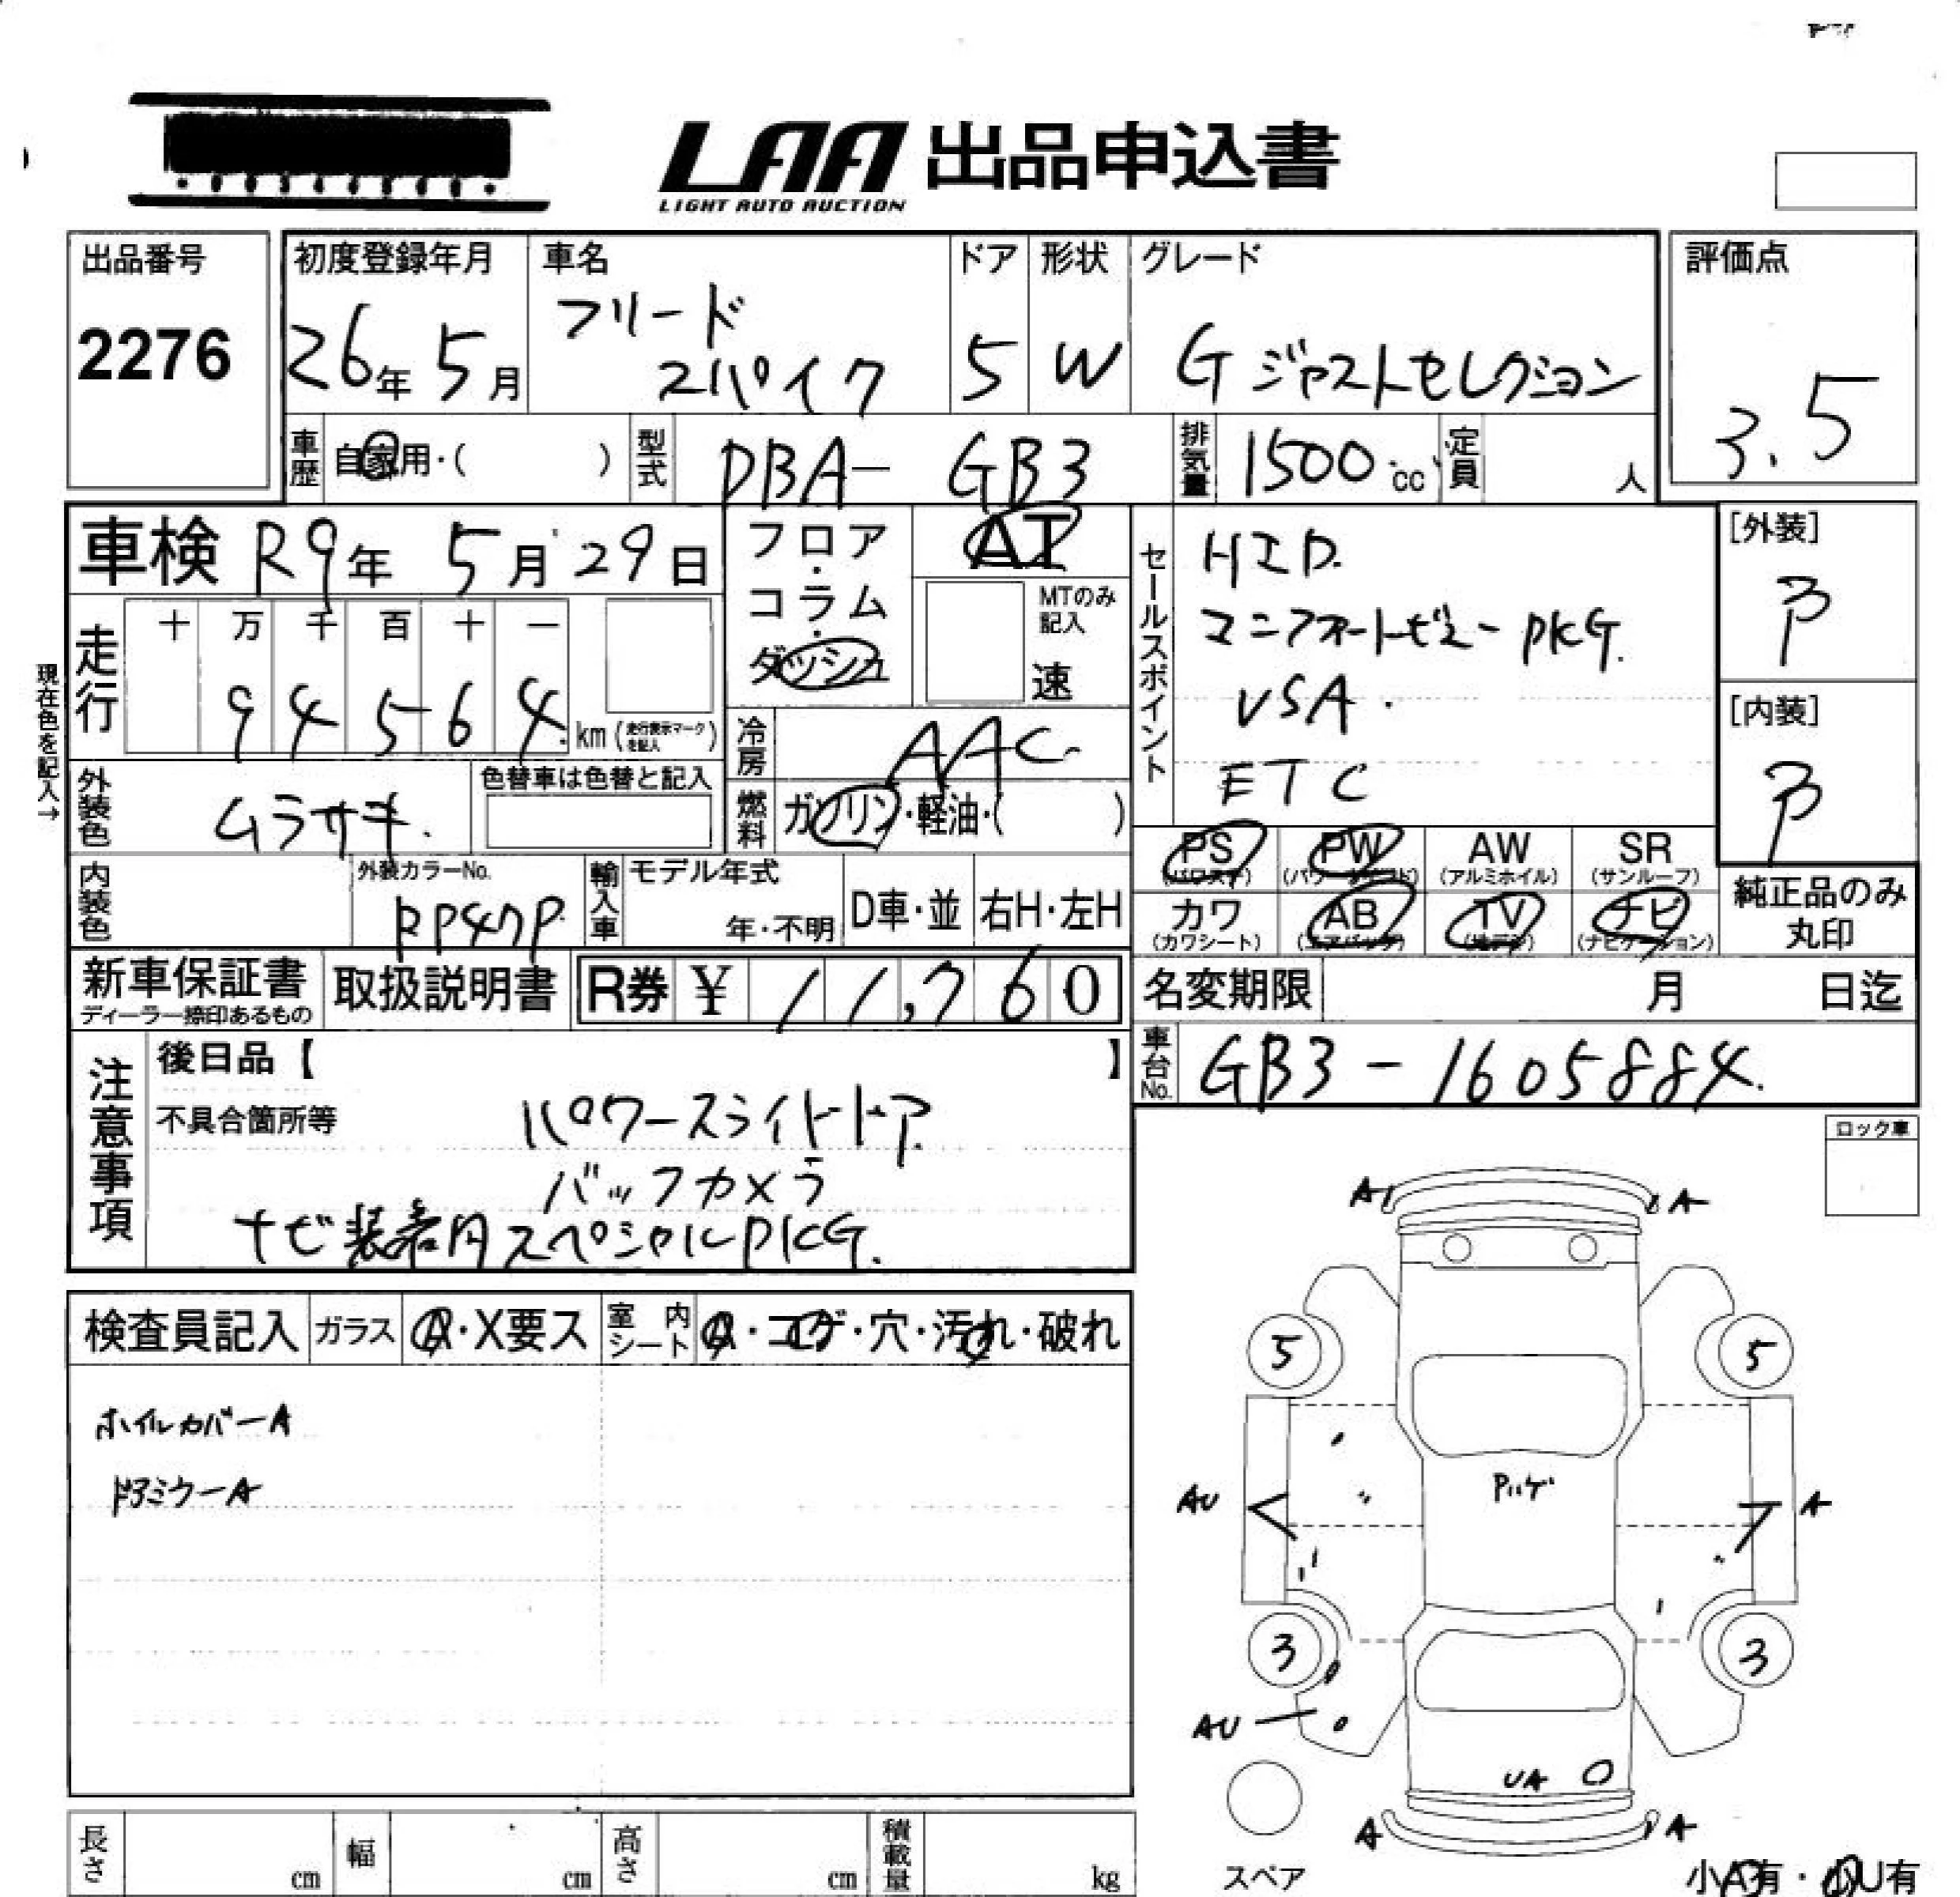 LAA 出品申込書
LIGHT AUTO AUCTION
出品番号
2276
初度登録年月
26年 5月
車名
フリード
スパイク
ドア
5
形状
W
グレード
G ジャストセレクション
評価点
3.5
車歴 自家用・( )
型式 DBA- GB3
排気量 1500 cc
定員 人
車検 R9年 5月 29日
走行
十 万 千 百 十 一
9 4 5 6 4 km (走行表示マークを記入)
現在色を記入→
外装色 ムラサキ
色替車は色替と記入
内装色
外装カラーNo.
RP47P
輸入車 モデル年式
年・不明
D車・並
右H・左H
フロア・コラム・ダッシュ
AT
MTのみ記入
速
冷房 AAC
燃料 ガソリン・軽油・( )
セールスポイント
HID.
マニフォートビューPKG.
VSA.
ETC
[外装]
[内装]
PS (パワステ)
PW (パワーウインド)
AW (アルミホイル)
SR (サンルーフ)
カワ (カワシート)
AB (エアバック)
TV (地デジ)
ナビ (ナビゲーション)
純正品のみ
丸印
新車保証書
ディーラー捺印あるもの
取扱説明書
R券 ¥ 11,760
名変期限 月 日迄
車台No. GB3-1605884.
注意事項
後日品【 】
不具合箇所等
パワースライドドア
バックカメラ
ナビ装着用スペシャルPKG.
ロック車
検査員記入
ガラス A・X要ス
室内シート A・コゲ・穴・汚れ・破れ
ホイルカバーA
ドアミラーA
A A
5 5
Pハゲ
AU A
3 3
AU
UA
A A
スペア
小A有・小U有
長さ cm
幅 cm
高さ cm
積載量 kg